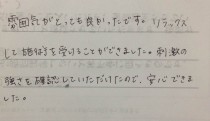 雰囲気がとっても良かったです。リラックス
して施術を受けることができました。刺激の
強さを確認していただいたので、安心できま
した。